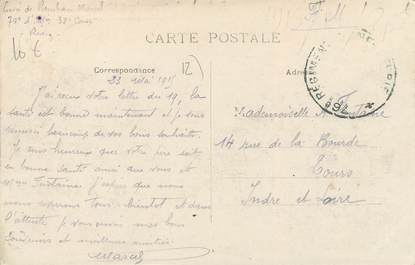 F M
10 €
12
CARTE POSTALE
Correspondance
Adresse
23 Mai 1915
J'ai reçu votre lettre du 19, la
santé est bonne maintenant et je vous
remercie beaucoup de vos bons souhaits.
Je suis heureux que votre père soit
en bonne santé ainsi que vous et
Fontaine J'espère que nous
nous verrons tous bientôt et dans
l'attente je vous envoie mes bons
souvenirs et meilleure amitié
Marcel
Mademoiselle Fontaine
14 rue de la Bourde
Tours
Indre et Loire